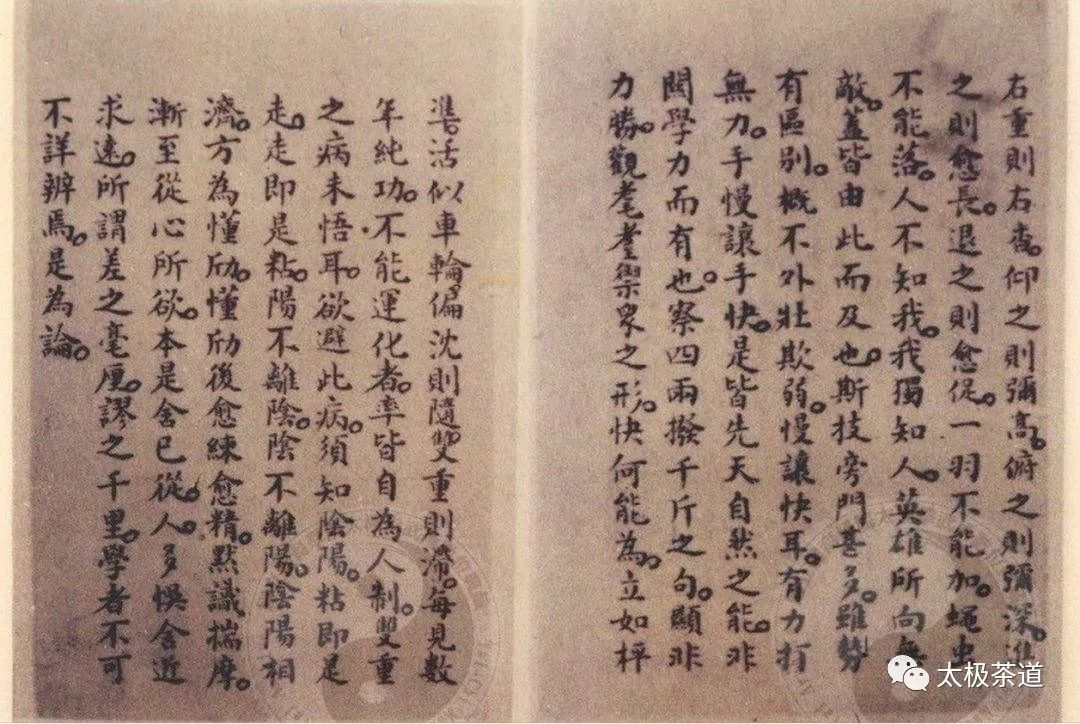 右重則右杳。仰之則彌高。俯之則彌深。進
之則愈長。退之則愈促。一羽不能加。蝇虫
不能落。人不知我。我獨知人。英雄所向無
敵。蓋皆由此而及也。斯技旁門甚多。雖勢
有區别。概不外壯欺弱。慢讓快耳。有力打
無力。手慢讓手快。是皆先天自然之能。非
関學力而有也。察四兩撥千斤之句。顯非
力勝。觀耄耋禦眾之形。快何能為。立如枰
準活似車輪偏沈則隨雙重則滯。每見數
年純功。不能運化者。率皆自為人制。雙重
之病未悟耳。欲避此病。須知陰陽。粘即是
走。走即是粘。陽不離陰。陰不離陽。陰陽相
濟。方為懂劤。懂劤後愈練愈精。默識揣摩。
漸至從心所欲。本是舍己從人。多悞舍近
求遠。所謂差之毫厘。謬之千里。學者不可
不詳辨焉。是為論。
太极茶道